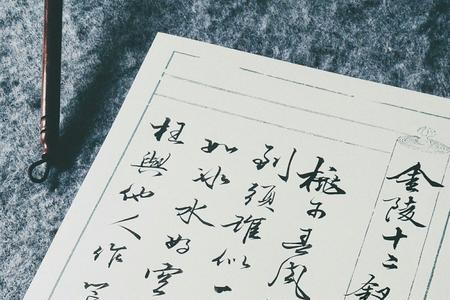 金陵十二釵
桃李春風
到頭誰似一
如冰水好空
枉與他人作